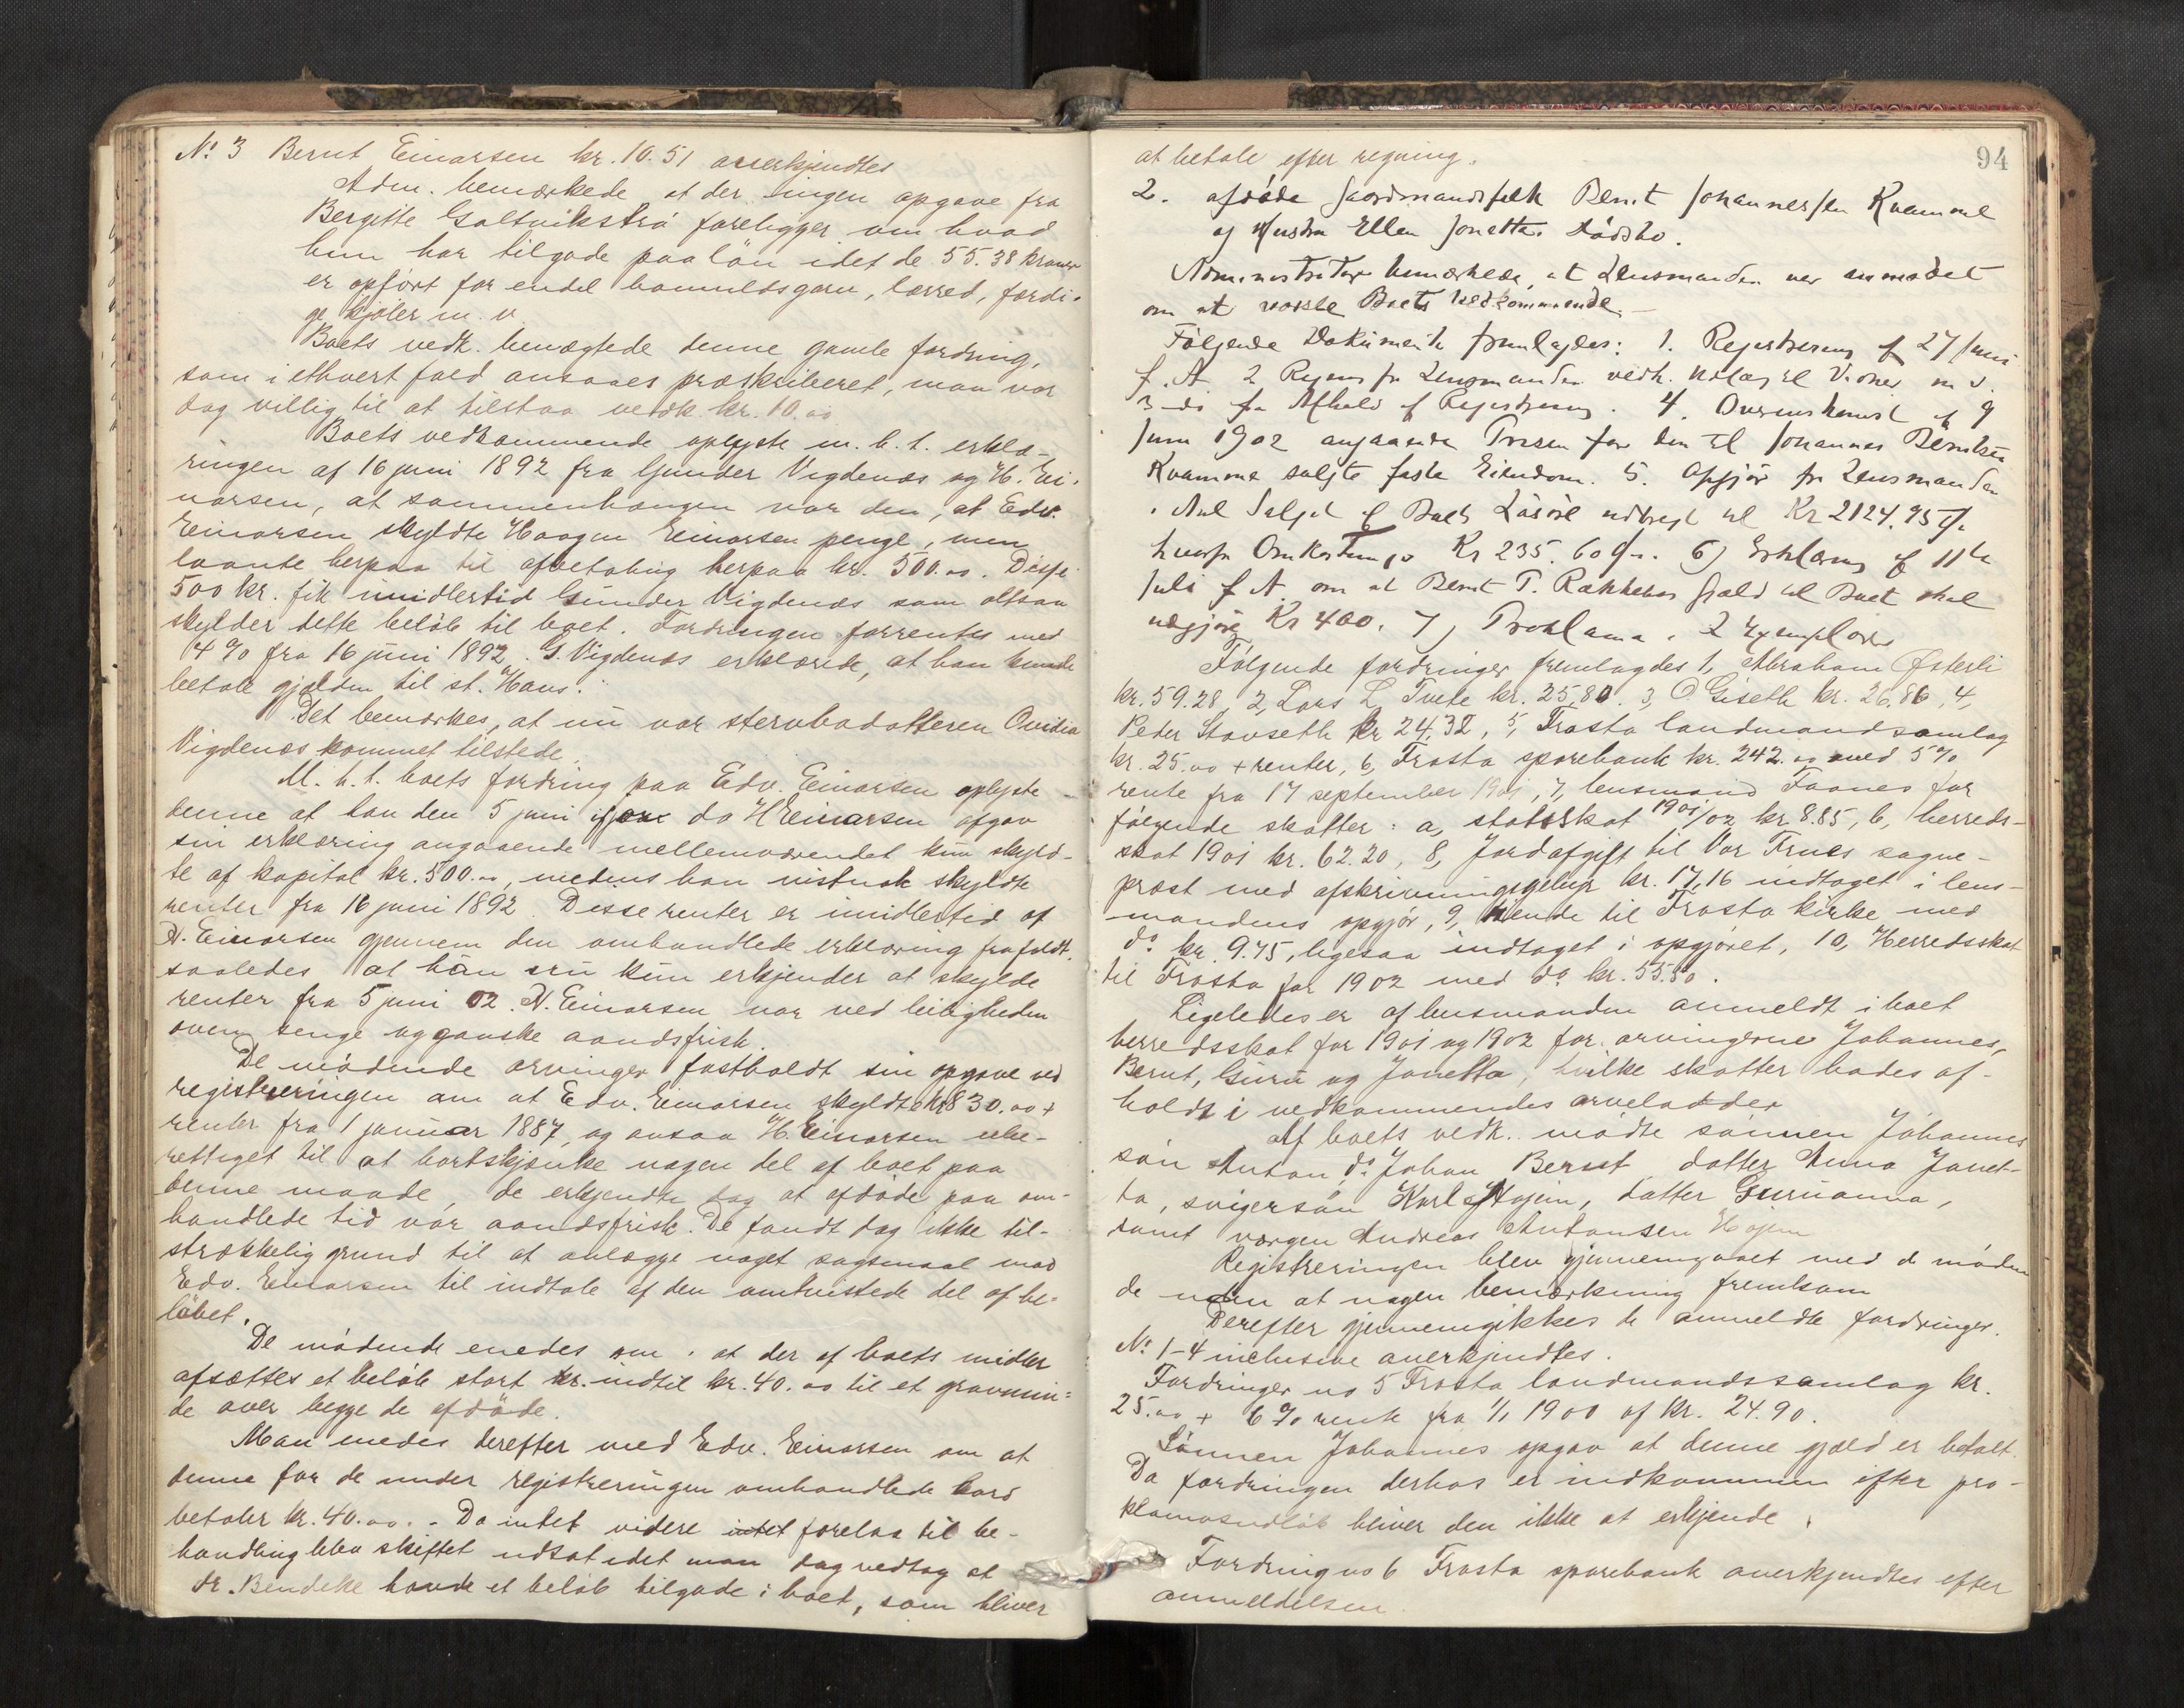 No 3 Bernt Einarsen kr. 10.51 anerkjendtes
Adm. bemærkede at der ingen opgave fra
Bergitte Galtvikstrø foreligger om hvad
hun har tilgode paa løn idet de 55.38 kroner
er opført for endel bomuldsgarn, lærred, færdi-
ge kjoler m. v.
Boets vedk. benægtede denne gamle fordring,
som i ethvert fald ansaaes præskriberet, man var
dog villig til at tilstaa vedk. kr. 10.00
Boets vedkommende oplyste m. h. t. erklæ-
ringen af 16 juni 1892 fra Gunder Vigdenæs og H. Ei-
narsen, at sammenhængen var den, at Edv.
Einarsen skyldte Haagen Einarsen penge, men
laante herpaa til afbetaling herpaa kr. 500.00. Disse
500 kr. fik imidlertid Gunder Vigdenæs som altsaa
skylder dette beløb til boet. Fordringen forrentes med
4 % fra 16 juni 1892. G. Vigdenæs erklærede, at han kunde
betale gjælden til st. Hans.
Det bemærkes, at nu var stervbodatteren Ovidia
Vigdenæs kommet tilstede.
M. h. t. boets fordring paa Edv. Einarsen oplyste
denne at han den 5 juni ifjor da H Einarsen afgav
sin erklæring angaaende mellemværendet kun skyld-
te af kapital kr. 500.00, medens han vistnok skyldte
renter fra 16 juni 1892. Disse renter er imidlertid af
H. Einarsen gjennem den omhandlede erklæring frafaldt,
saaledes at han nu kun erkjender at skylde
renter fra 5 juni 02. H. Einarsen var ved leiligheden
oven senge og ganske aandsfrisk.
De mødende arvinger fastholdt sin opgave ved
registreringen om at Edv. Einarsen skyldte kr 830.00 +
renter fra 1 januar 1887, og ansaa H. Einarsen ube-
rettiget til at bortskjænke nogen del af boet paa
denne maade, de erkjendte dog at afdøde paa om-
handlede tid var aandsfrisk. De fandt dog ikke til-
strækkelig grund til at anlægge noget sagsmaal mod
Edv. Einarsen til indtale af den omtvistede del af be-
løbet.
De mødende enedes om at der af boets midler
afsættes et beløb stort kr. indtil kr. 40.00 til et gravmin-
de over begge de afdøde.
Man enedes derefter med Edv. Einarsen om at
denne for de under registreringen omhandlede bord
betaler kr. 40.00. - Da intet videre intet forelaa til be-
handling blev skiftet udsat idet man dog vedtog at
dr. Bendeke havde et beløb tilgode i boet, som bliver
94
at betale efter regning.
2. afdøde Gaardmandsfolk Bernt Johannessen Kvamme
og Hustru Ellen Jonettas Dødsbo.
Administrator bemærkede, at Lensmanden var anmodet
om at varsle Boets Vedkommende. -
Følgende Dokumenter fremlagdes: 1. Registrering af 27 Juni
f. A. 2 Regning fra Lensmanden vedk. m. v.
3 do for Afhold af Registrering. 4. Overenskomst af 9
Juni 1902 angaaende Prisen for den til Johannes Berntsen
Kvamme solgte faste Eiendom. 5. Opgjør fra Lensmanden
Salget af Boets Løsøre udbragt til Kr 2124.95
hvorfra Omkostninger Kr 235.60. 6) Erklæring af 11te
Juli f. A. om at Bernt T. Gjæld til Boet skal
udgjøre Kr 400. 7) Proklama i 2 Exemplarer
Følgende fordringer fremlagdes 1, Abraham Østerli
kr. 59.28, 2, Lars L. Tvete kr. 25,80. 3, O Giseth kr. 26,86, 4,
Peder Stavseth kr 24,32, 5, Frosta landmandssamlag
kr. 25.00 + renter, 6, Frosta sparebank kr. 242.00 med 5 %
rente fra 17 september 1901, 7, lensmand Faanes for
følgende skatter: a, statsskat 1901/02 kr. 8.85, b, herreds-
skat 1901 kr. 62.20, 8, Jordafgift til Vor Frues sogne-
præst med afskrivningsgebyr kr. 17,16 indtaget i lens-
mandens opgjør, 9, tiende til Frosta kirke med
do kr. 9.75, ligesaa indtaget i opgjøret, 10, Herredsskat
til Frosta for 1902 med do kr. 55.50.
Ligeledes er af lensmanden anmeldt i boet
herredsskat for 1901 og 1902 for arvingerne Johannes,
Bernt, Guru og Jonetta, hvilke skatter bades af-
holdt i vedkommendes arvelodder
Af boets vedk. mødte sønnen Johannes
søn Anton, do Johan Bernt datter Anna Jonet-
ta, svigersøn Karl Hojem, datter Guruanna,
samt værgen Andreas Antonsen Hojem
Registreringen blev gjennemgaaet med de møden
de uden at nogen bemærkning fremkom
Derefter gjennemgikkes de anmeldte fordringer.
No 1-4 inclusive anerkjendtes.
Fordringer no 5 Frosta landmandssamlag kr.
25.00 + 6 % rente fra 1/1 1900 af kr. 24.90.
Sønnen Johannes opgav at denne gjæld er betalt.
Da fordringen derhos er indkommen efter pro-
klamaudløb bliver den ikke at erkjende.
Fordring no 6 Frosta sparebank anerkjendtes efter
anmeldelsen.